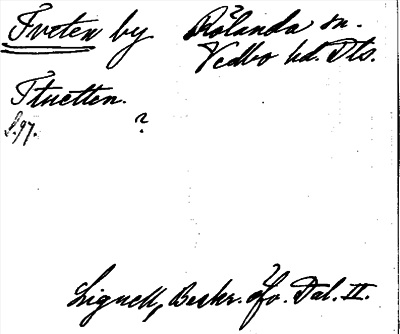 Tveten by Rölanda sn.
Vedbo hd. Dls.
Ttuetten.
S.97. ?
Lignell, Beskr. öfv. Dal. II.